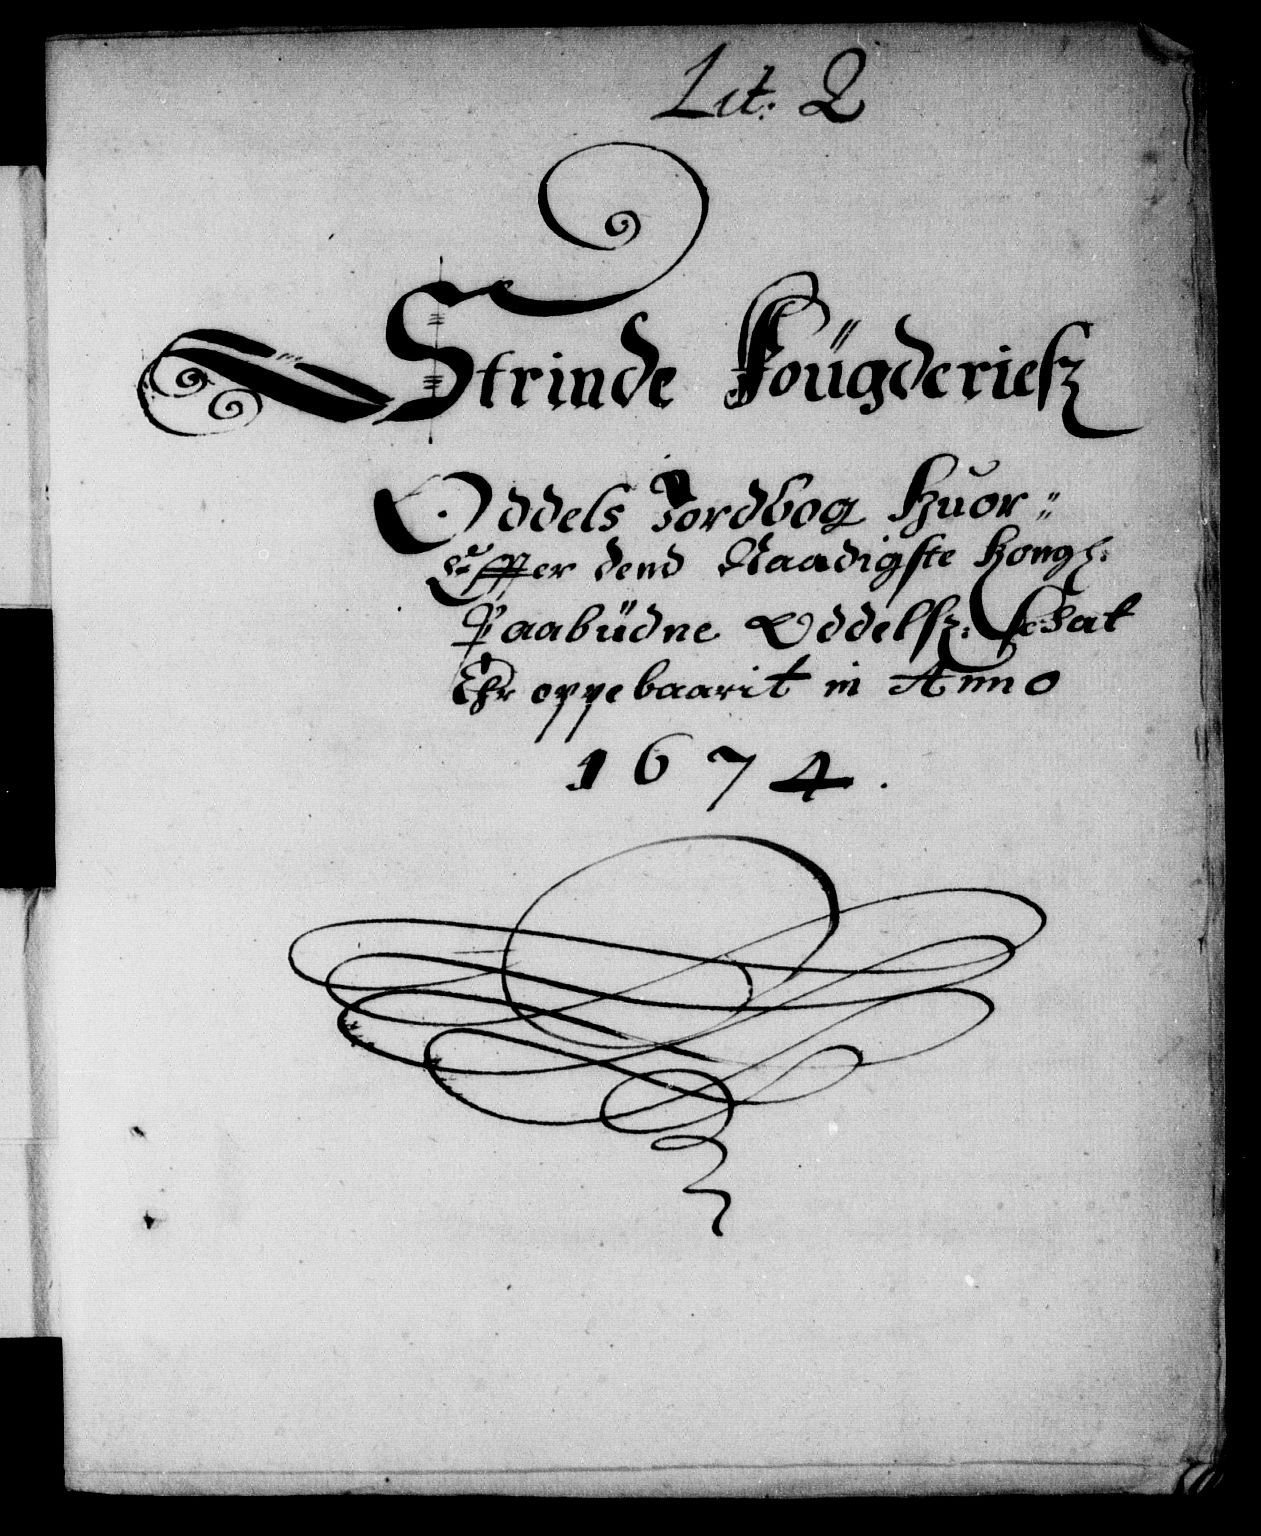 Lit. Q
Strinde Foügderiesz
Oddels Jordbog Huor-
Effter dend Naadigste Kongl:
Paabüdne Oddelsz: Schat
Ehr oppebaarit in Anno
1674.